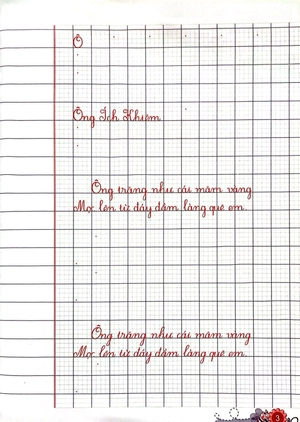 Ô
Ông Ích Khiêm
Ông trăng như cái mâm vàng
Mọc lên từ đáy đầm làng quê em.
Ông trăng như cái mâm vàng
Mọc lên từ đáy đầm làng quê em.
3